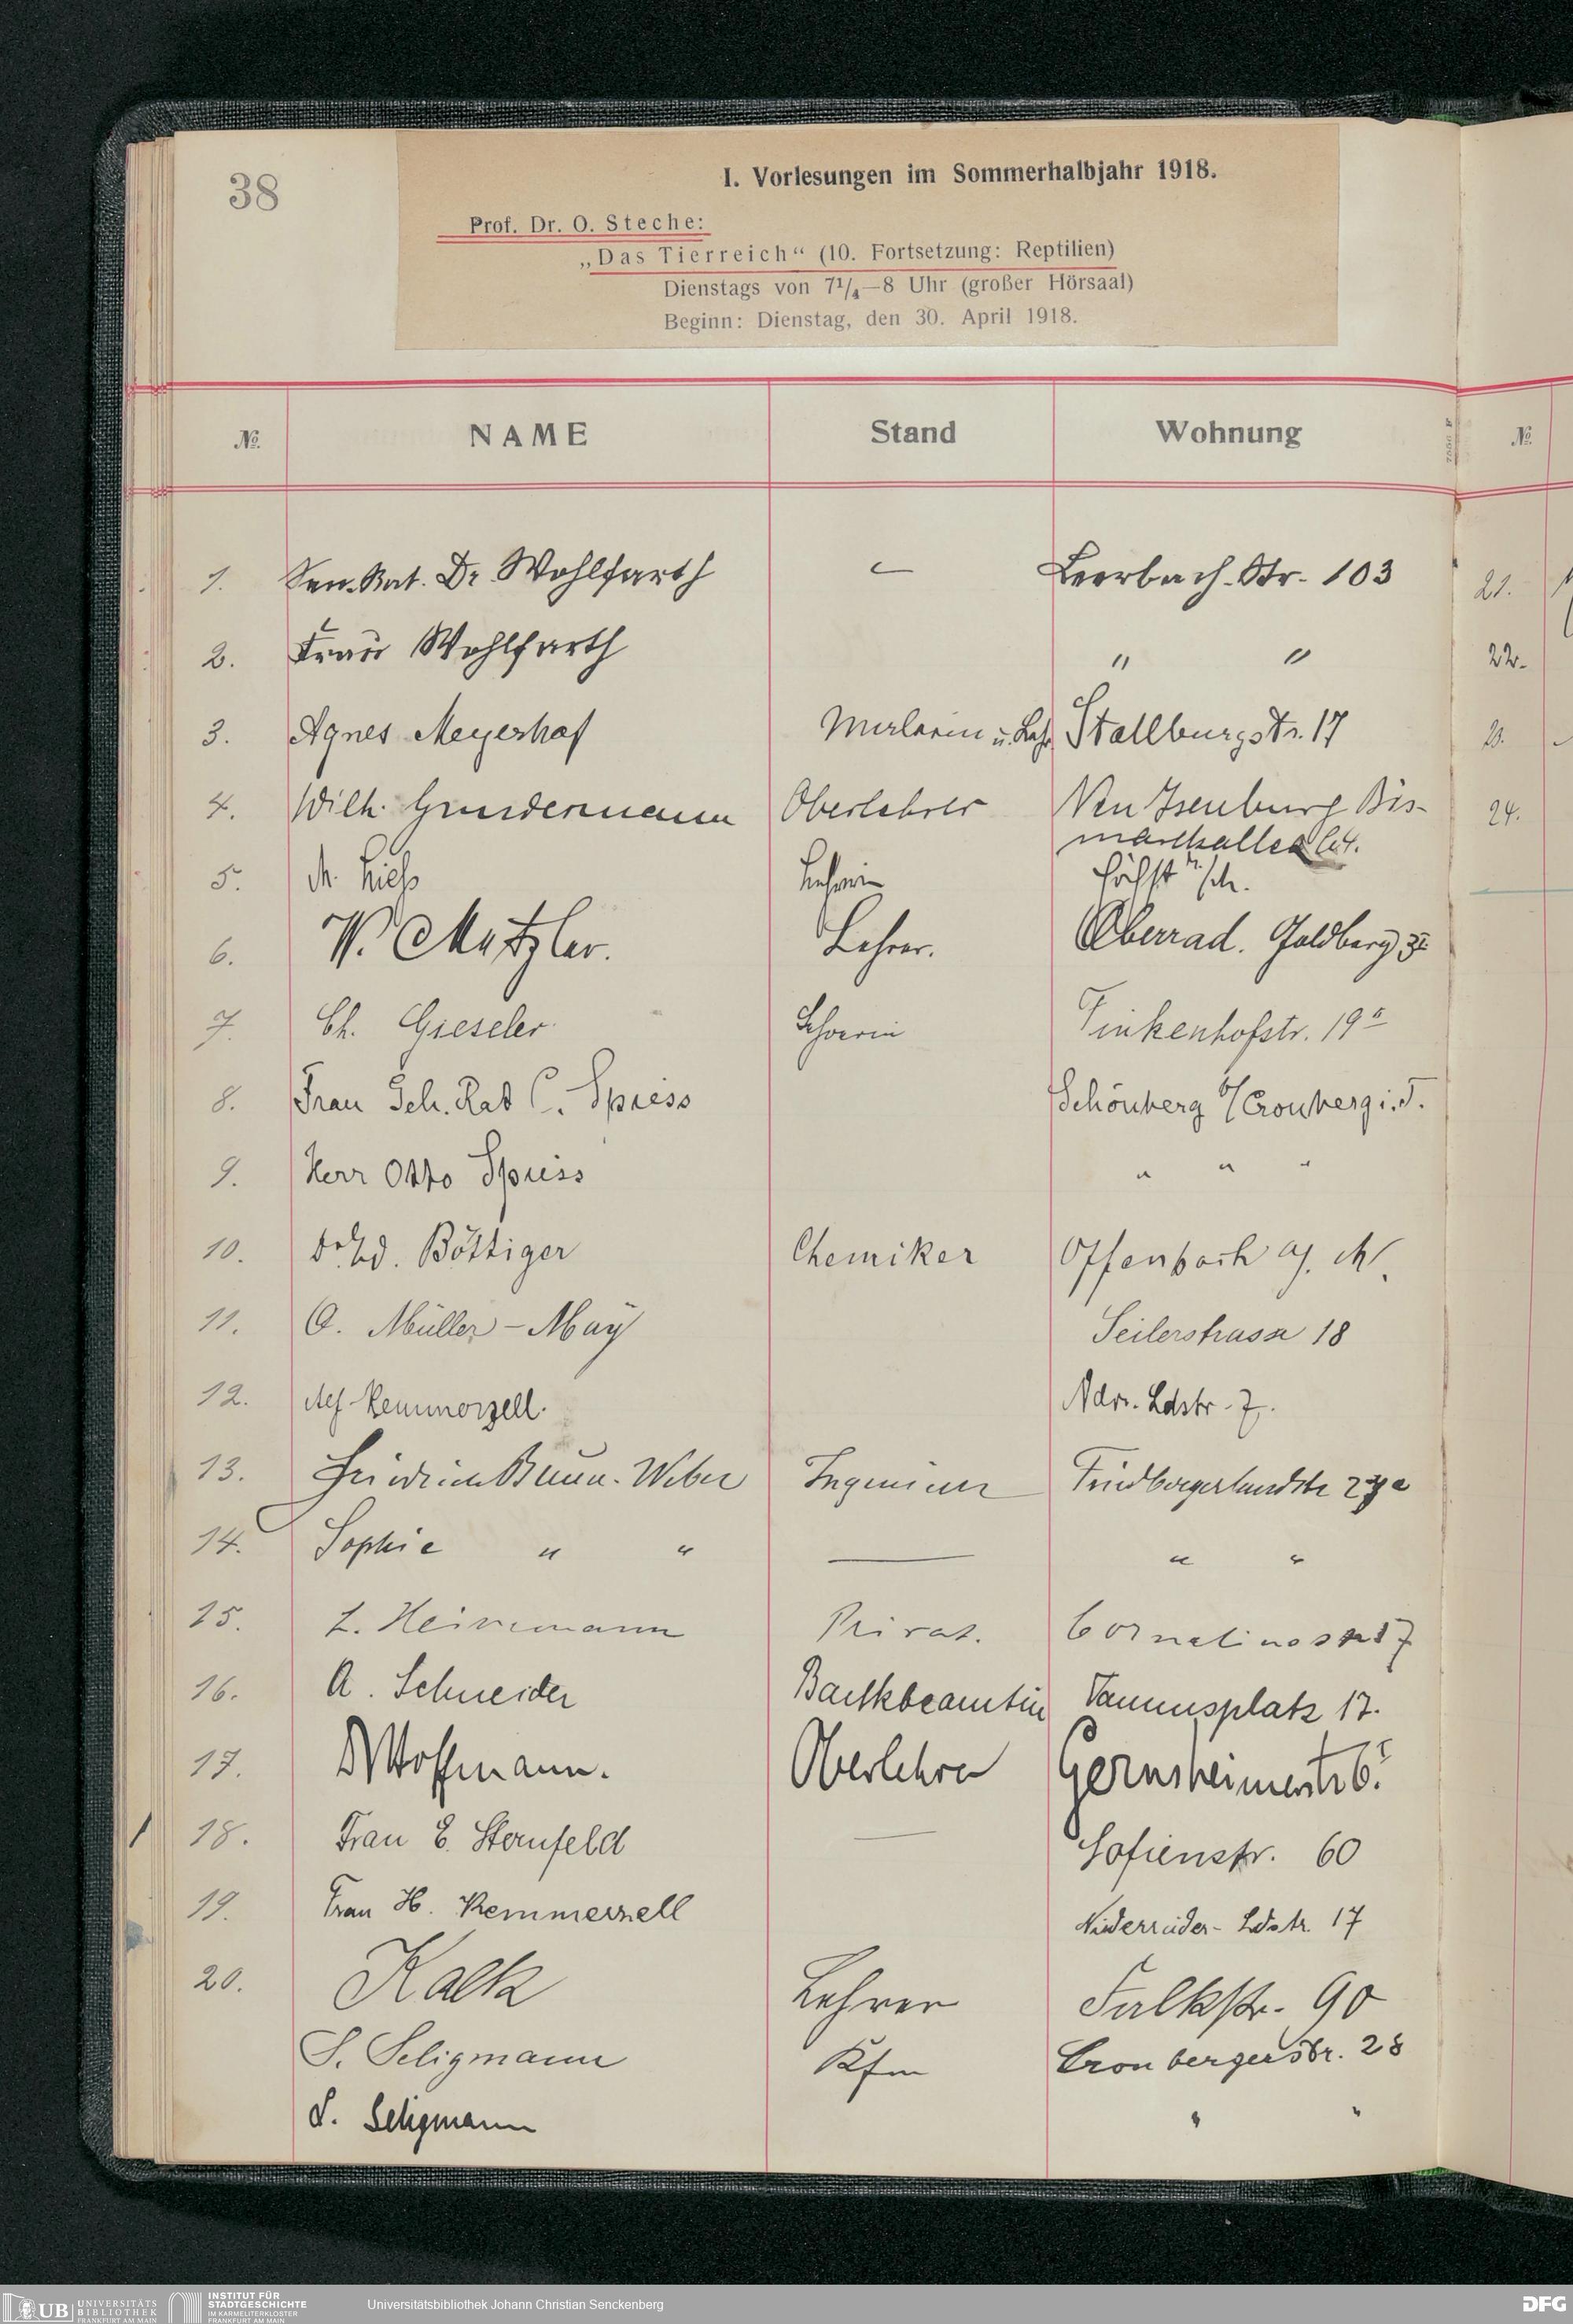 38
I. Vorlesungen im Sommerhalbjahr 1918.
Prof. Dr. O. Steche:
„Das Tierreich“ (10. Fortsetzung: Reptilien)
Dienstags von 7¼—8 Uhr (großer Hörsaal)
Beginn: Dienstag, den 30. April 1918.
№ NAME Stand Wohnung №
1. San. Rat. Dr. Wohlfarth — Leerbach. Str. 103 21.
2. Frau Wohlfarth " " 22.
3. Agnes Meyerhof Malerin u. Stallburgstr. 17 23.
4. Wilh. Grundermann Oberlehrer Neu Isenburg Bis- 24.
marckallee
5. Lehrerin Höchst
6. V. Metzler. Lehrer. Oberrad. Goldberg
7. Ch. Gieseler Lehrerin Finkenhofstr. 19
8. Frau Geh. Rat C. Spiess Schönberg b/Cronberg i. T.
9. Herr Otto Spiess " " "
10. Böttiger Chemiker Offenbach a/. M.
11. O. Müller-May Seilerstrasse 18
12. Kemmerzell. Ndr. Ldstr. 7.
13. Weber Ingenieur Friedbergerlandstr
14. Sophie " " — " "
15. L. Heinemann Privat. Corneliusstr 17
16. A. Schneider Bankbeamtin Taunusplatz 17.
17. Oberlehrer Gernsheimerstr 6.
18. Frau E. Sternfeld — Sofienstr. 60
19. Frau H. Kemmerzell Niederräder-Ldstr. 17
20. Kalk Lehrer Falkstr. 90
S. Seligmann Kfm Cronbergerstr. 28
S. Seligmann " "
UB UNIVERSITÄTS
BIBLIOTHEK
FRANKFURT AM MAIN
INSTITUT FÜR
STADTGESCHICHTE
IM KARMELITERKLOSTER
FRANKFURT AM MAIN
Universitätsbibliothek Johann Christian Senckenberg
DFG